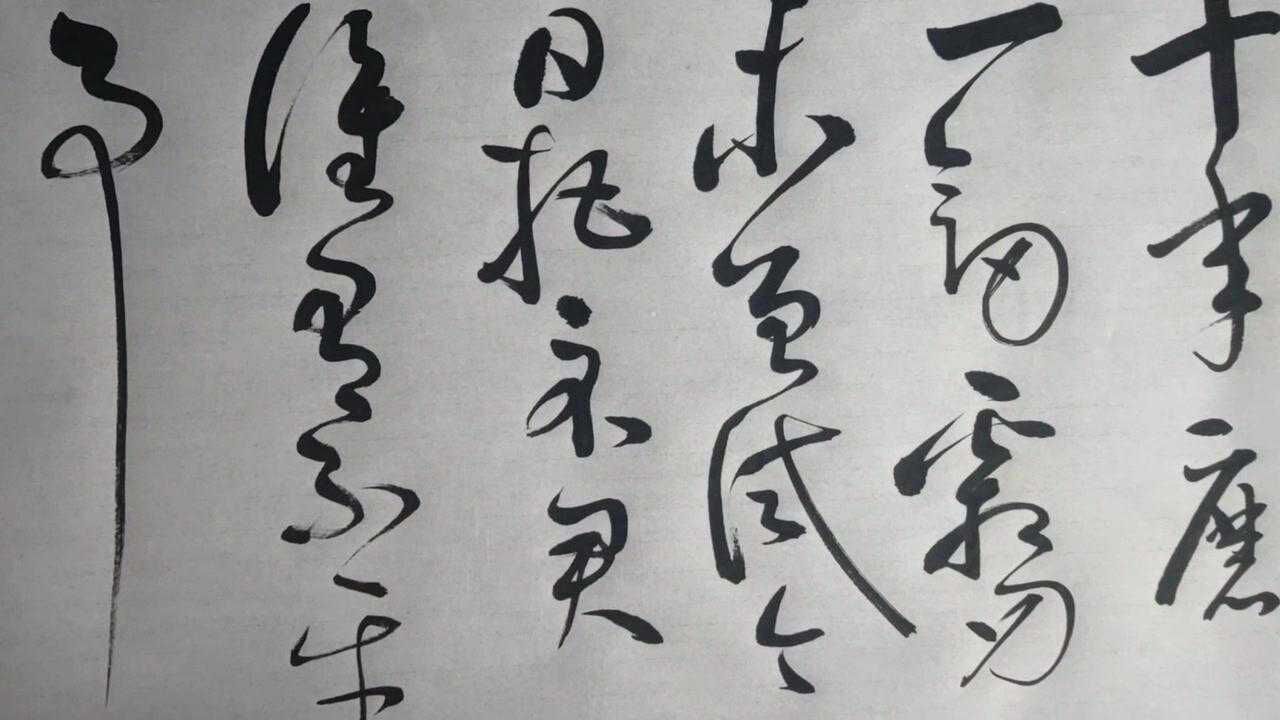 十年磨
一劍霜刃
未曾試今
日把示君
誰為不平
事